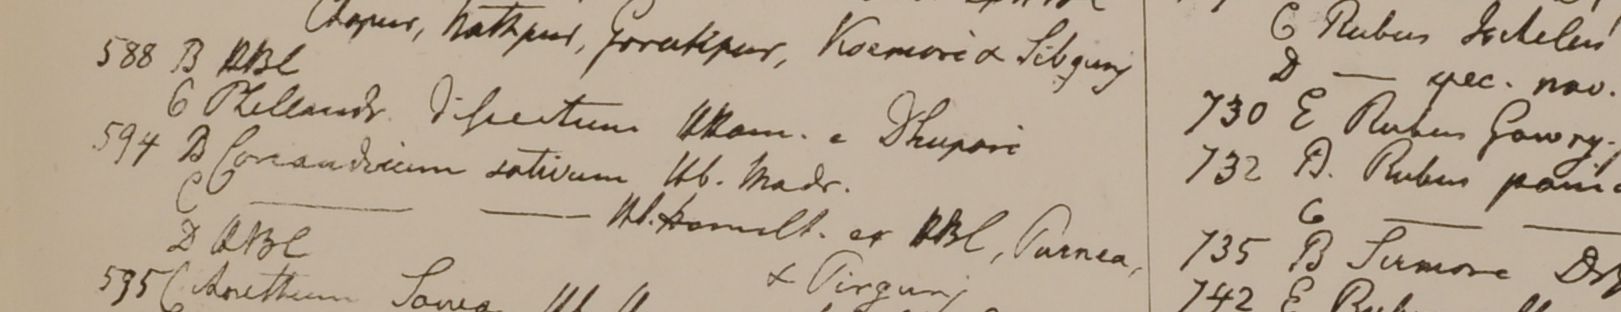 Chapur, Nathpur, Gorukpur, Kosmori & Sibgunj
588 B HBC
C Phellandr. dissectum HHam. e Dhupori
594 B Coriandrum sativum Hb. Madr.
C — — Hb. Hamilt. ex HBC, Purnea,
D HBC
& Pirgunj
595 C Anethum Sowa Hb.
C Rubus
D — spec. nov.
730 E Rubus Gowry
732 B. Rubus
C — —
735 B Sirmore
742 E Rubus